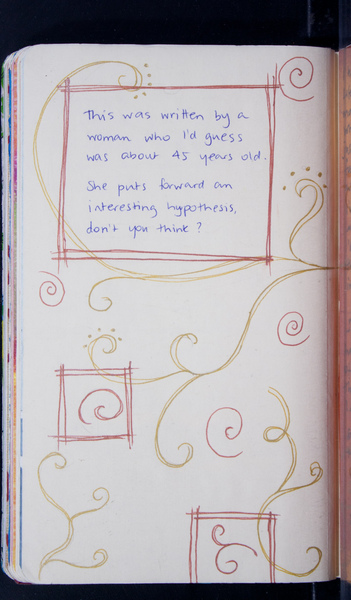 This was written by a
woman who I'd guess
was about 45 years old.
She puts forward an
interesting hypothesis,
don't you think?